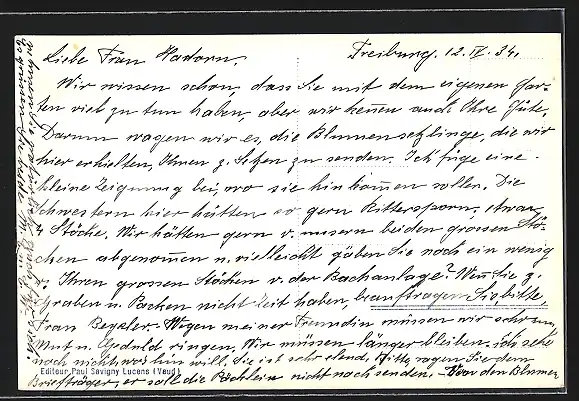 Liebe Frau Hadorn,
Freiburg, 12. IV. 34.
Wir wissen schon, dass Sie mit dem eigenen Gar-
ten viel zu tun haben, aber wir kennen auch Ihre Güte.
Darum wagen wir es, die Blumensetzlinge, die wir
hier erhielten, Ihnen z. Setzen zu senden. Ich füge eine
kleine Zeignung bei, wo sie hin kommen sollen. Die
Schwestern hier hätten so gern Rittersporn, etwa
4 Stöcke. Wir hätten gern v. unsern beiden grossen Stö-
cken abgenommen u. vielleicht gäben Sie noch ein wenig
v. Ihren grossen Stöcken v. der Bachanlage? Wenn Sie z.
Graben u. Packen nicht Zeit haben, beauftragen Sie bitte,
Frau Beyeler. Wegen meiner Freundin müssen wir sehr um
Mut u. Geduld ringen. Wir müssen länger bleiben. ich sehe
noch nicht, was nun will. Sie ist sehr elend. Bitte sagen Sie dem
Briefträger, er soll die Päcklein nicht nachsenden. - Von den Blumen
Editeur Paul Savigny Lucens (Vaud)